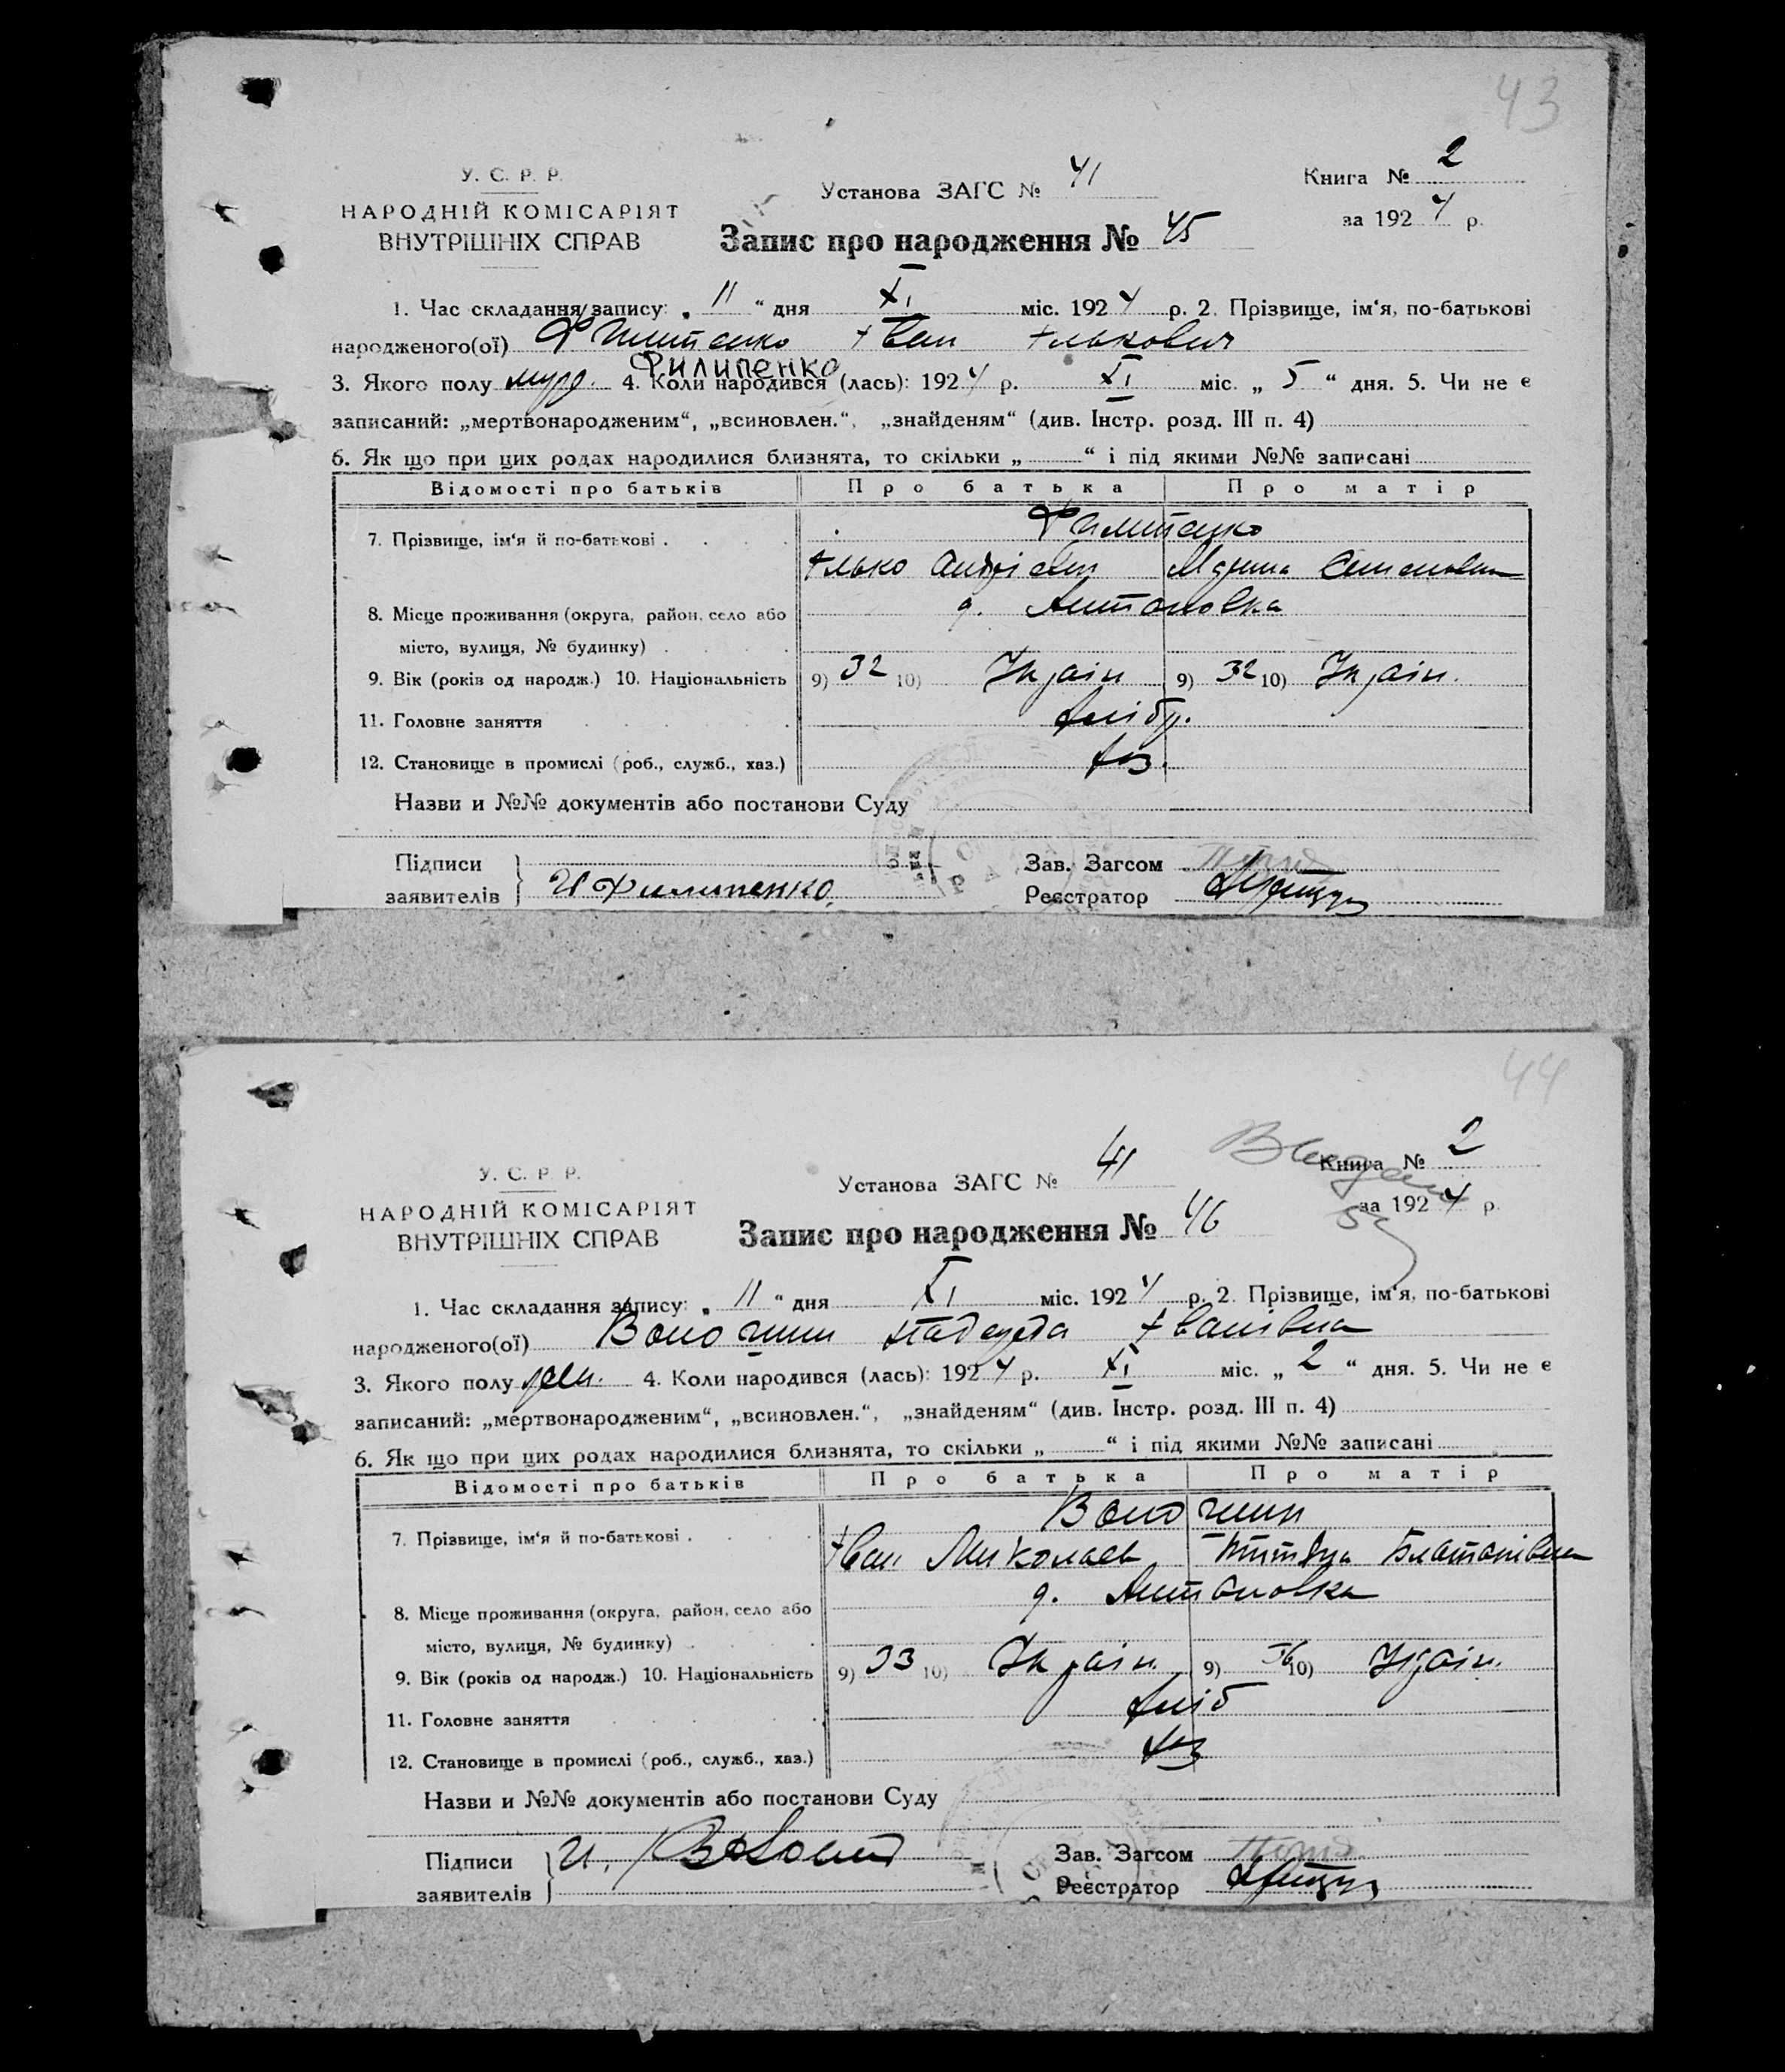 43
У. С. Р. Р.
НАРОДНІЙ КОМІСАРІЯТ
ВНУТРІШНІХ СПРАВ
Установа ЗАГС № 41
Книга № 2
за 1924 р.
Запис про народження № 45
1. Час складання запису: „ 11 “ дня XI міс. 1924 р. 2. Прізвище, ім‘я, по-батькові
народженого(ої) Филипенко Іван Ількович
Филипенко
3. Якого полу муж. 4. Коли народився (лась): 1924 р. XI міс. „ 5 “ дня. 5. Чи не є
записаний: „мертвонародженим“, „всиновлен.“, „знайденям“ (див. Інстр. розд. III п. 4)
6. Як що при цих родах народилися близнята, то скільки „ “ і під якими №№ записані
Відомості про батьків Про батька Про матір
7. Прізвище, ім‘я й по-батькові . Филипенко
Ілько Андрієв Марина
8. Місце проживання (округа, район, село або д. Антоновка
місто, вулиця, № будинку)
9. Вік (років од народж.) 10. Національність 9) 32 10) Украін 9) 32 10) Украін.
11. Головне заняття хлібр.
12. Становище в промислі (роб., служб., хаз.) хаз.
Назви и №№ документів або постанови Суду
Підписи
заявителів И Филипенко.
Зав. Загсом
Реєстратор
44
У. С. Р. Р.
НАРОДНІЙ КОМІСАРІЯТ
ВНУТРІШНІХ СПРАВ
Установа ЗАГС № 41
Книга № 2
за 1924 р.
Запис про народження № 46
1. Час складання запису: „ 11 “ дня XI міс. 1924 р. 2. Прізвище, ім‘я, по-батькові
народженого(ої) Надежда Іванівна
3. Якого полу жен. 4. Коли народився (лась): 1924 р. XI міс. „ 2 “ дня. 5. Чи не є
записаний: „мертвонародженим“, „всиновлен.“, „знайденям“ (див. Інстр. розд. III п. 4)
6. Як що при цих родах народилися близнята, то скільки „ “ і під якими №№ записані
Відомості про батьків Про батька Про матір
7. Прізвище, ім‘я й по-батькові .
Іван Миколаев
8. Місце проживання (округа, район, село або д. Антоновка
місто, вулиця, № будинку)
9. Вік (років од народж.) 10. Національність 9) 33 10) Украін. 9) 10) Украін.
11. Головне заняття хліб
12. Становище в промислі (роб., служб., хаз.) хаз
Назви и №№ документів або постанови Суду
Підписи
заявителів
Зав. Загсом
Реєстратор